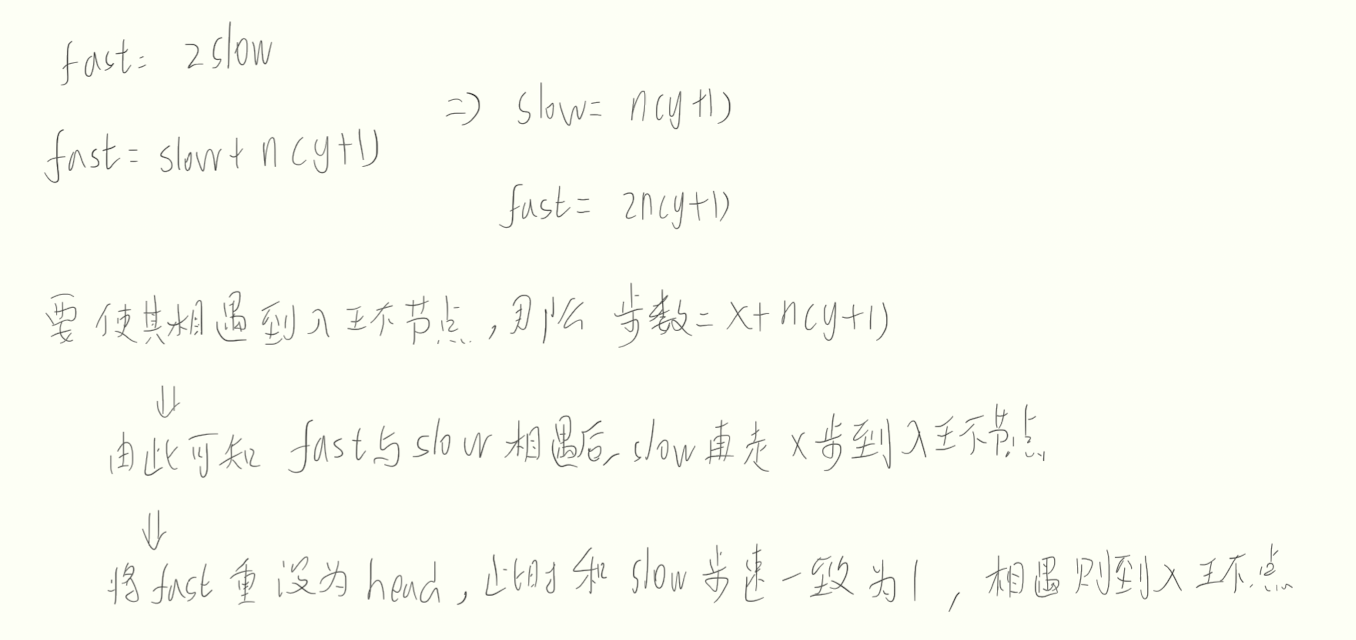 fast = 2slow
=> slow = n(y+1)
fast = slow + n(y+1)
fast = 2n(y+1)
要使其相遇到入环节点,那么 步数 = x+n(y+1)
⇓
由此可知 fast与slow相遇后,slow再走x步到入环节点
⇓
将fast重设为head,此时和slow步速一致为1,相遇则到入环点